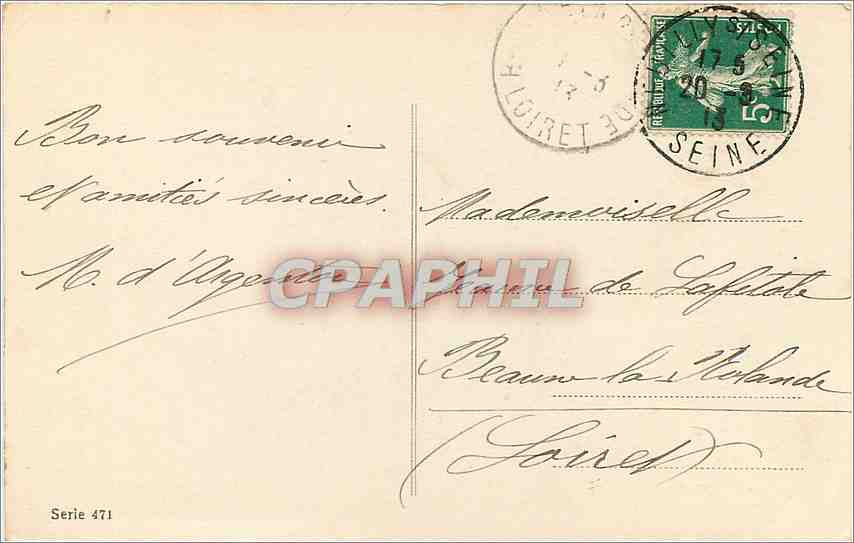 Bon souvenir
et amitiés sincères.
M. d'Argentin
Mademoiselle
Jeanne de Lafitole
Beaune la Rolande
(Loiret)
Serie 471
LOIRET
NEUILLY S/SEINE
17 5
20 -3
13
SEINE
REPUBLIQUE FRANÇAISE
POSTES
5
CPAPHIL